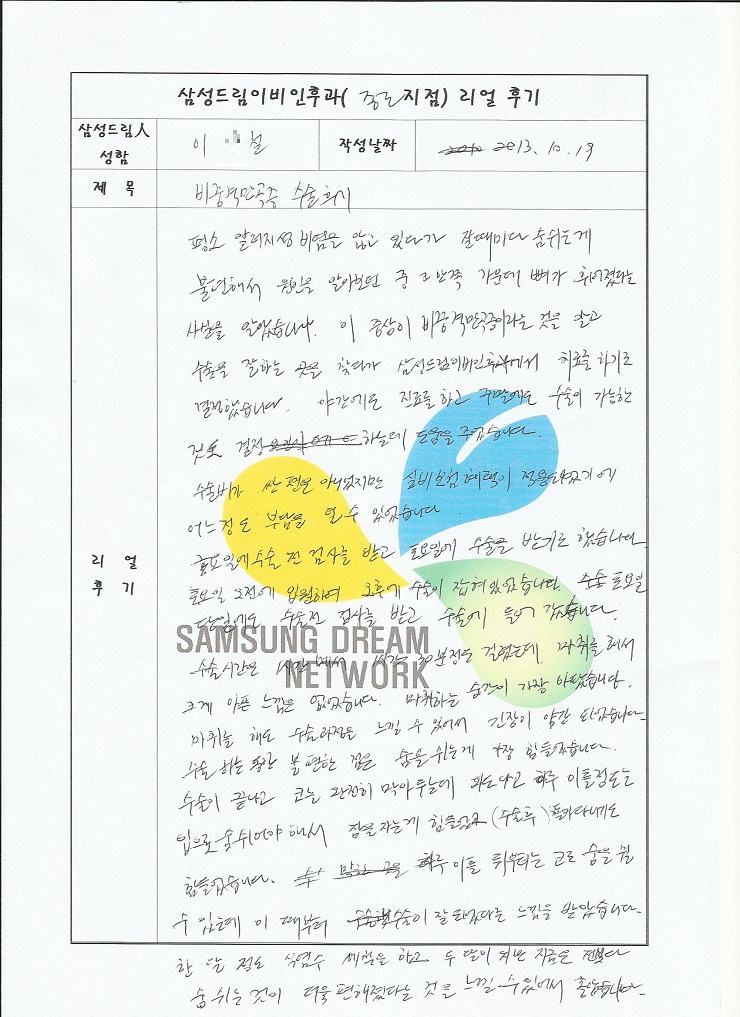 삼성드림이비인후과( 종로지점) 리얼 후기
삼성드림人 성함
이 철
작성날짜
2013. 10. 19
제 목
비중격만곡증 수술 후기
리 얼 후 기
평소 알러지성 비염을 앓고 있다가 잘때마다 숨쉬는게
불편해서 원인을 알아보던 중 코 안쪽 가운데 뼈가 휘어졌다는
사실을 알았습니다. 이 증상이 비중격만곡증이라는 것을 알고
수술을 잘하는 곳을 찾다가 삼성드림이비인후과에서 치료를 하기로
결정했습니다. 야간에도 진료를 하고 주말에도 수술이 가능한
것도 결정 하는데 도움을 주었습니다.
수술비가 싼 편은 아니었지만 실비보험 혜택이 적용되었기에
어느정도 부담을 덜 수 있었습니다
금요일에 수술 전 검사를 받고 토요일에 수술을 받기로 했습니다.
토요일 오전에 입원하여 오후에 수술이 잡혀 있었습니다. 수술 토요일
당일에도 수술전 검사를 받고 수술에 들어 갔습니다.
SAMSUNG DREAM
NETWORK
수술시간은 1시간 에서 1시간 30분정도 걸렸는데, 마취를 해서
크게 아픈 느낌은 없었습니다. 마취하는 순간이 가장 아팠습니다.
마취를 해도 수술과정을 느낄 수 있어서 긴장이 약간 되었습니다.
수술 하는 동안 불편한 점은 숨을 쉬는게 가장 힘들었습니다.
수술이 끝나고 코는 완전히 막아두는데 하루 이틀정도는
입으로 숨쉬어야 해서 잠을 자는게 힘들었고 (수술후)
힘들었습니다. 하루 이틀 뒤부터는 코로 숨을 쉴
수 있는데 이 때부터 수술이 잘 되었다는 느낌을 받았습니다.
한 달 정도 식염수 세척을 하고 두 달이 되는 지금은 전보다
숨 쉬는 것이 더욱 편해졌다는 것을 느낄 수 있어서 좋습니다.